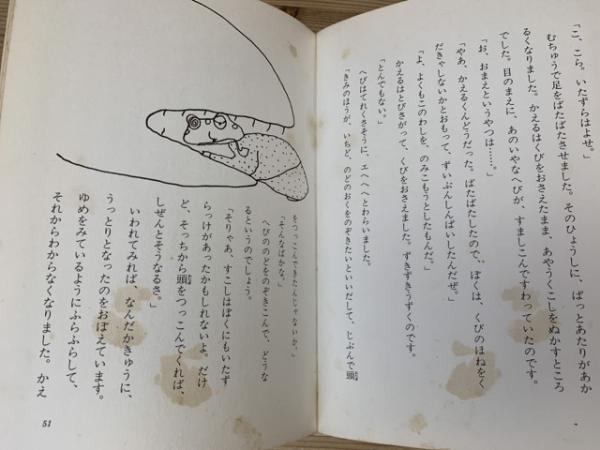 「こ、こら。いたずらはよせ。」
むちゅうで足をばたばたさせました。そのひょうしに、ぱっとあたりがあか
るくなりました。かえるはくびをおさえたまま、あやうくこしをぬかすところ
でした。目のまえに、あのいやなへびが、すましこんですわっていたのです。
「お、おまえというやつは……。」
「やあ、かえるくんどうだった。ばたばたしたので、ぼくは、くびのほねをく
だきゃしないかとおもって、ずいぶんしんぱいしたんだぜ。」
「よ、よくもこのわしを、のみこもうとしたもんだ。」
かえるはとびさがって、くびをおさえました。ずきずきうずくのです。
「とんでもない。」
へびはてれくさそうに、エヘヘヘとわらいました。
「きみのほうが、いちど、のどのおくをのぞきたいといいだして、じぶんで頭
をつっこんできたんじゃないか。」
「そんなばかな。」
へびののどをのぞきこんで、どうな
るというのでしょう。
「そりゃあ、すこしはぼくにもいたず
らっけがあったかもしれないよ。だけ
ど、そっちから頭をつっこんでくれば、
しぜんとそうなるさ。」
いわれてみれば、なんだかきゅうに、
うっとりとなったのをおぼえています。
ゆめをみているようにふらふらして、
それからわからなくなりました。かえ
51